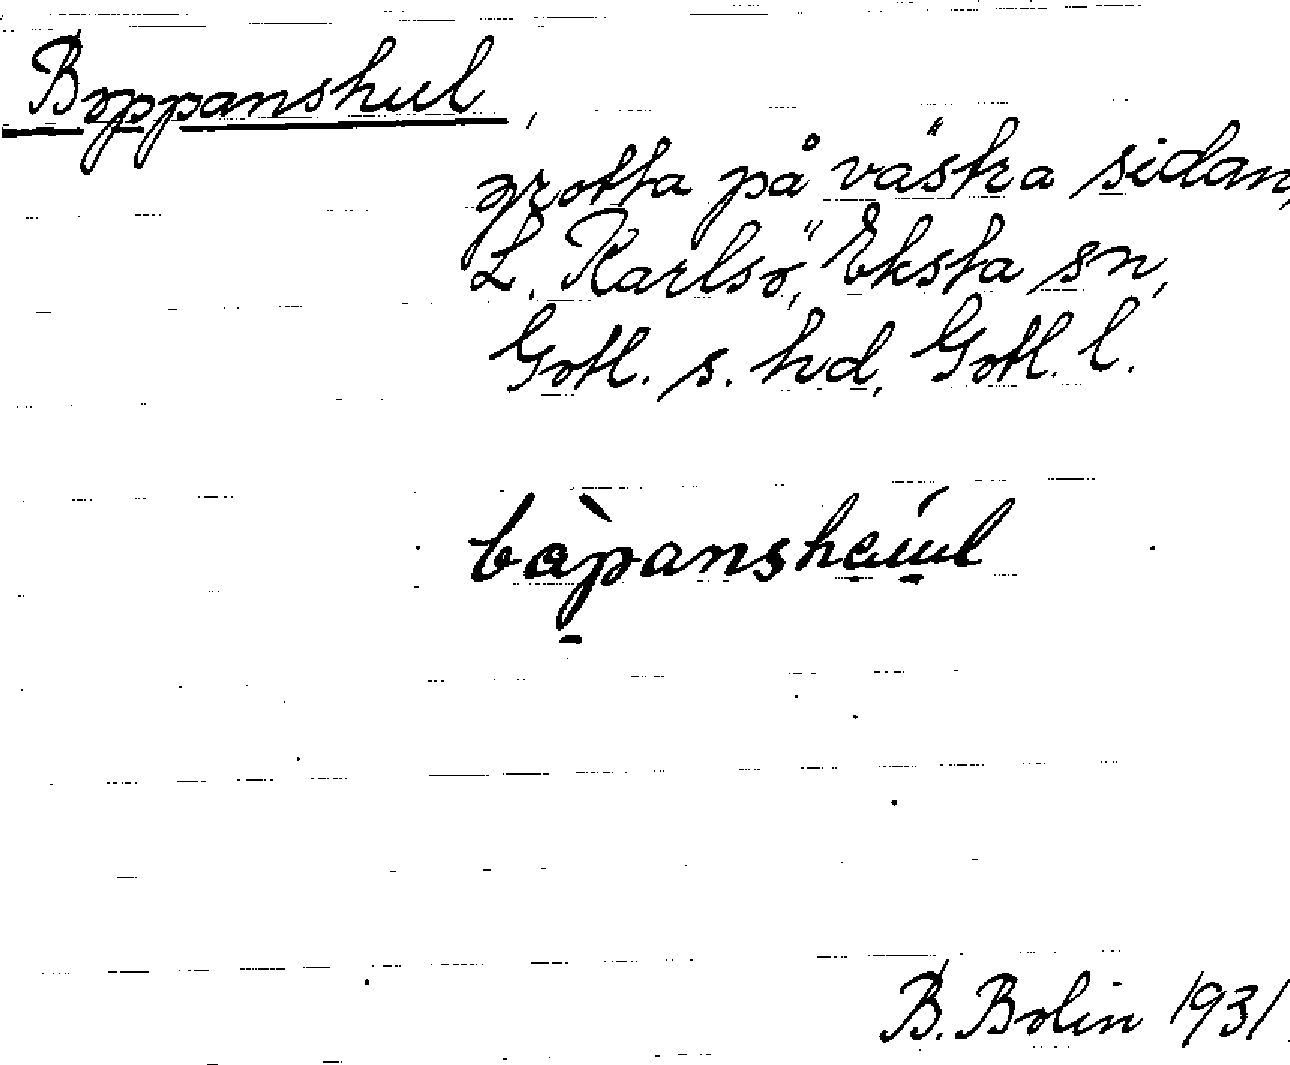 Boppanshul,
grotta på västra sidan,
L. Karlsö, Eksta sn,
Gotl. s. hd, Gotl. l.
bàpanshaúl
B. Bolin 1931